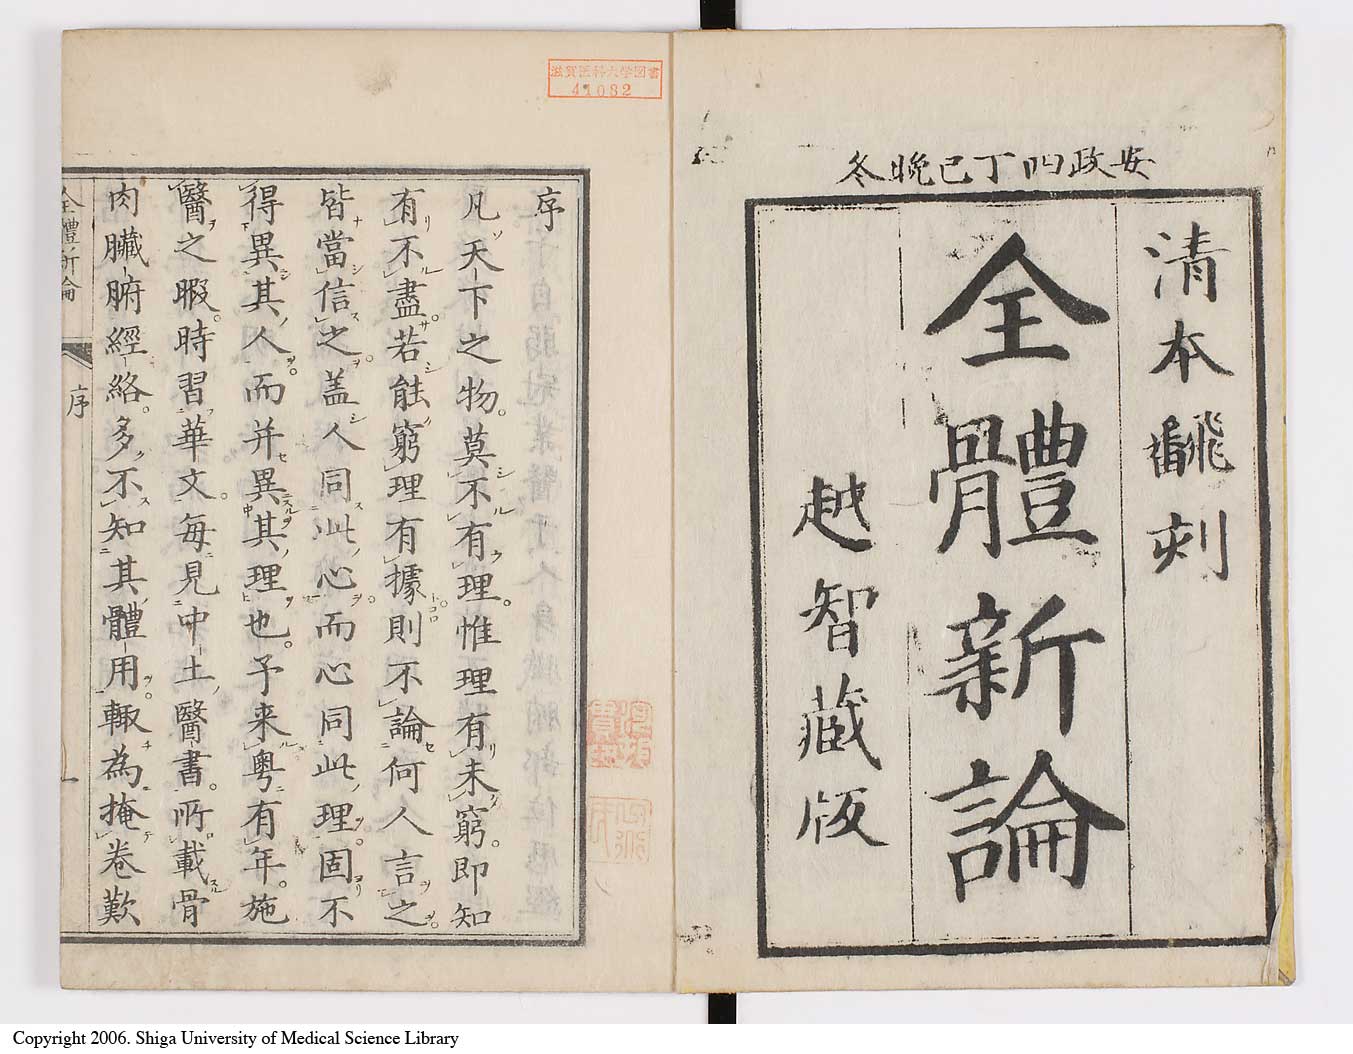 安政四丁巳晩冬
清本飜刻
全體新論
越智藏版
滋賀医科大学図書
41032
序
凡天下之物。莫不有理。惟理有未窮。即知
有不盡。若能窮理有據則不論何人言之。
皆當信之。盖人同此心。而心同此理。固不
得異其人。而并異其理也。予来粤有年。施
醫之暇。時習華文。毎見中土醫書。所載骨
肉臟腑經絡。多不知其體用。輙為掩卷歎
全體新論
序
一
Copyright 2006. Shiga University of Medical Science Library